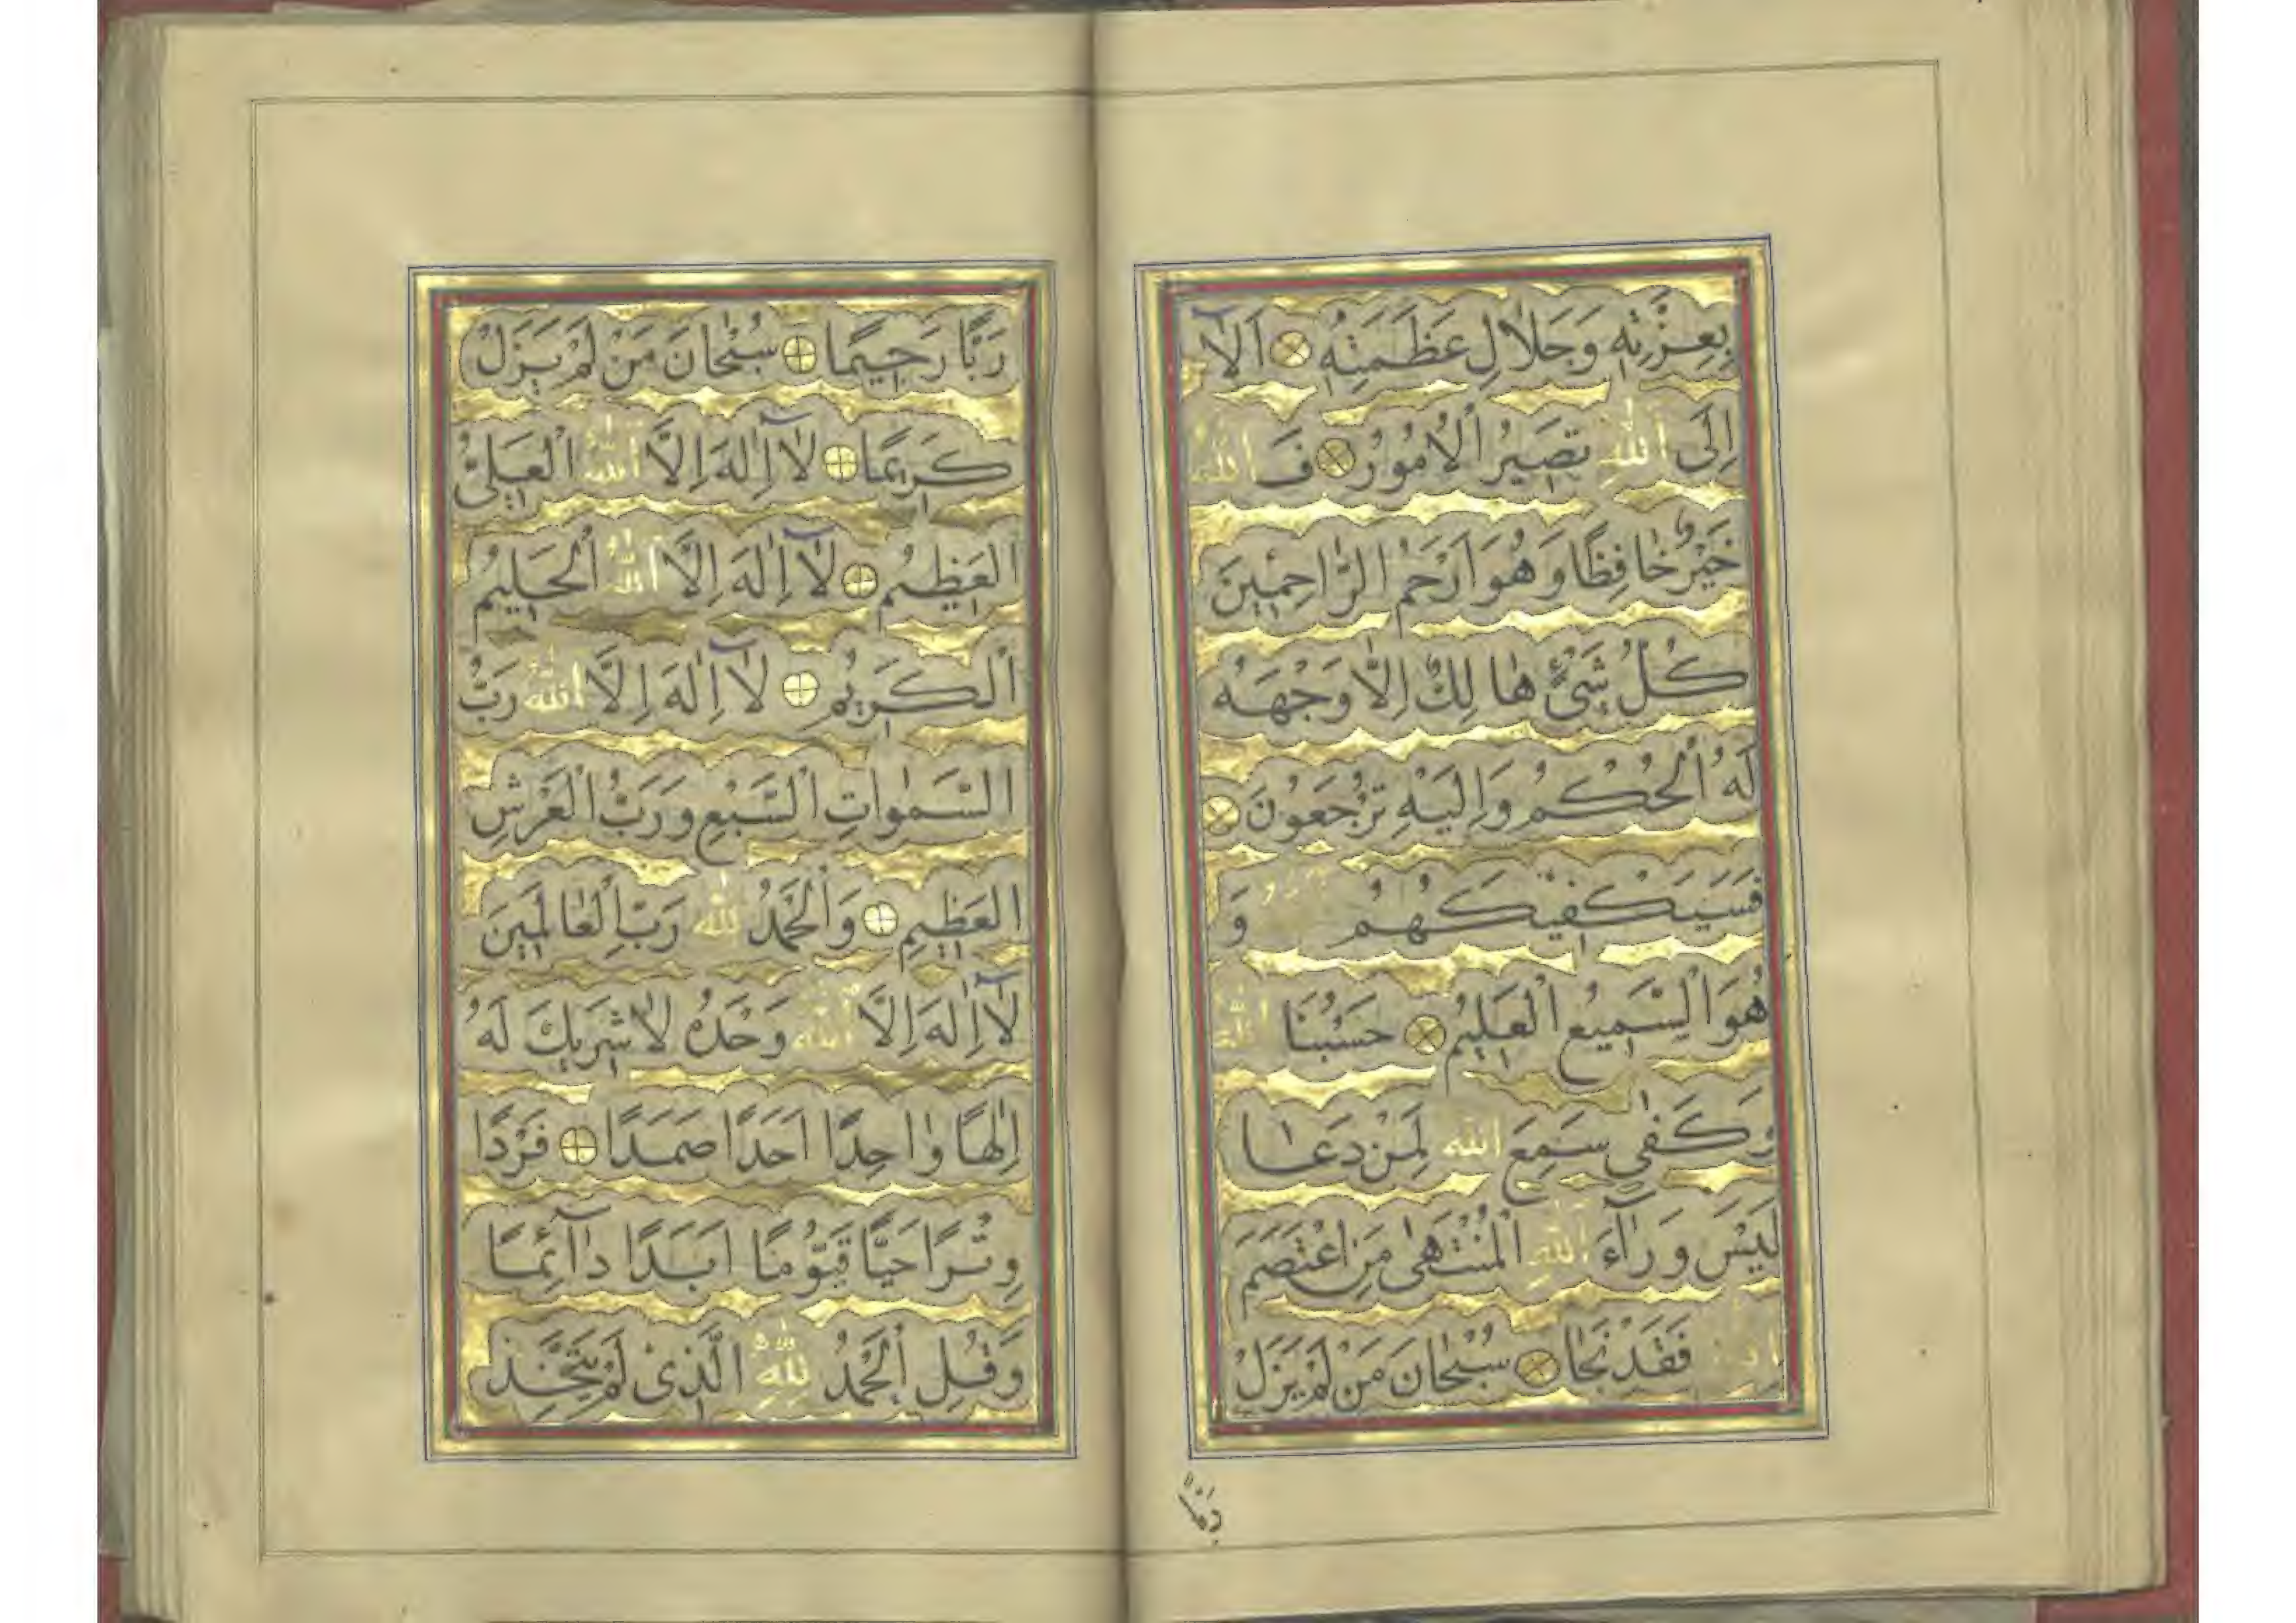 بِعِزَّتِهِ وَجَلَالِ عَظَمَتِهِ اَلَا
اِلَى اللّٰهِ تَصِيرُ الْاُمُورُ فَاللّٰهُ
خَيْرٌ حَافِظًا وَهُوَ اَرْحَمُ الرَّاحِمِينَ
كُلُّ شَيْءٍ هَالِكٌ اِلَّا وَجْهَهُ
لَهُ الْحُكْمُ وَاِلَيْهِ تُرْجَعُونَ
فَسَيَكْفِيكَهُمُ وَ
هُوَ السَّمِيعُ الْعَلِيمُ حَسْبُنَا اللّٰهُ
وَكَفٰى سَمِعَ اللّٰهُ لِمَنْ دَعَا
لَيْسَ وَرَآءَ اللّٰهِ الْمُنْتَهٰى مَنِ اعْتَصَمَ
فَقَدْ نَجَا سُبْحَانَ مَنْ لَمْ يَزَلْ
رَبًّا
رَبًّا رَحِيمًا سُبْحَانَ مَنْ لَمْ يَزَلْ
كَرِيمًا لَآ اِلٰهَ اِلَّا اللّٰهُ الْعَلِيُّ
الْعَظِيمُ لَآ اِلٰهَ اِلَّا اللّٰهُ الْحَلِيمُ
الْكَرِيمُ لَآ اِلٰهَ اِلَّا اللّٰهُ رَبُّ
السَّمٰوَاتِ السَّبْعِ وَرَبُّ الْعَرْشِ
الْعَظِيمِ وَالْحَمْدُ لِلّٰهِ رَبِّ الْعَالَمِينَ
لَآ اِلٰهَ اِلَّا اللّٰهُ وَحْدَهُ لَا شَرِيكَ لَهُ
اِلٰهًا وَاحِدًا اَحَدًا صَمَدًا فَرْدًا
وِتْرًا حَيًّا قَيُّومًا اَبَدًا دَآئِمًا
وَقُلِ الْحَمْدُ لِلّٰهِ الَّذِى لَمْ يَتَّخِذْ